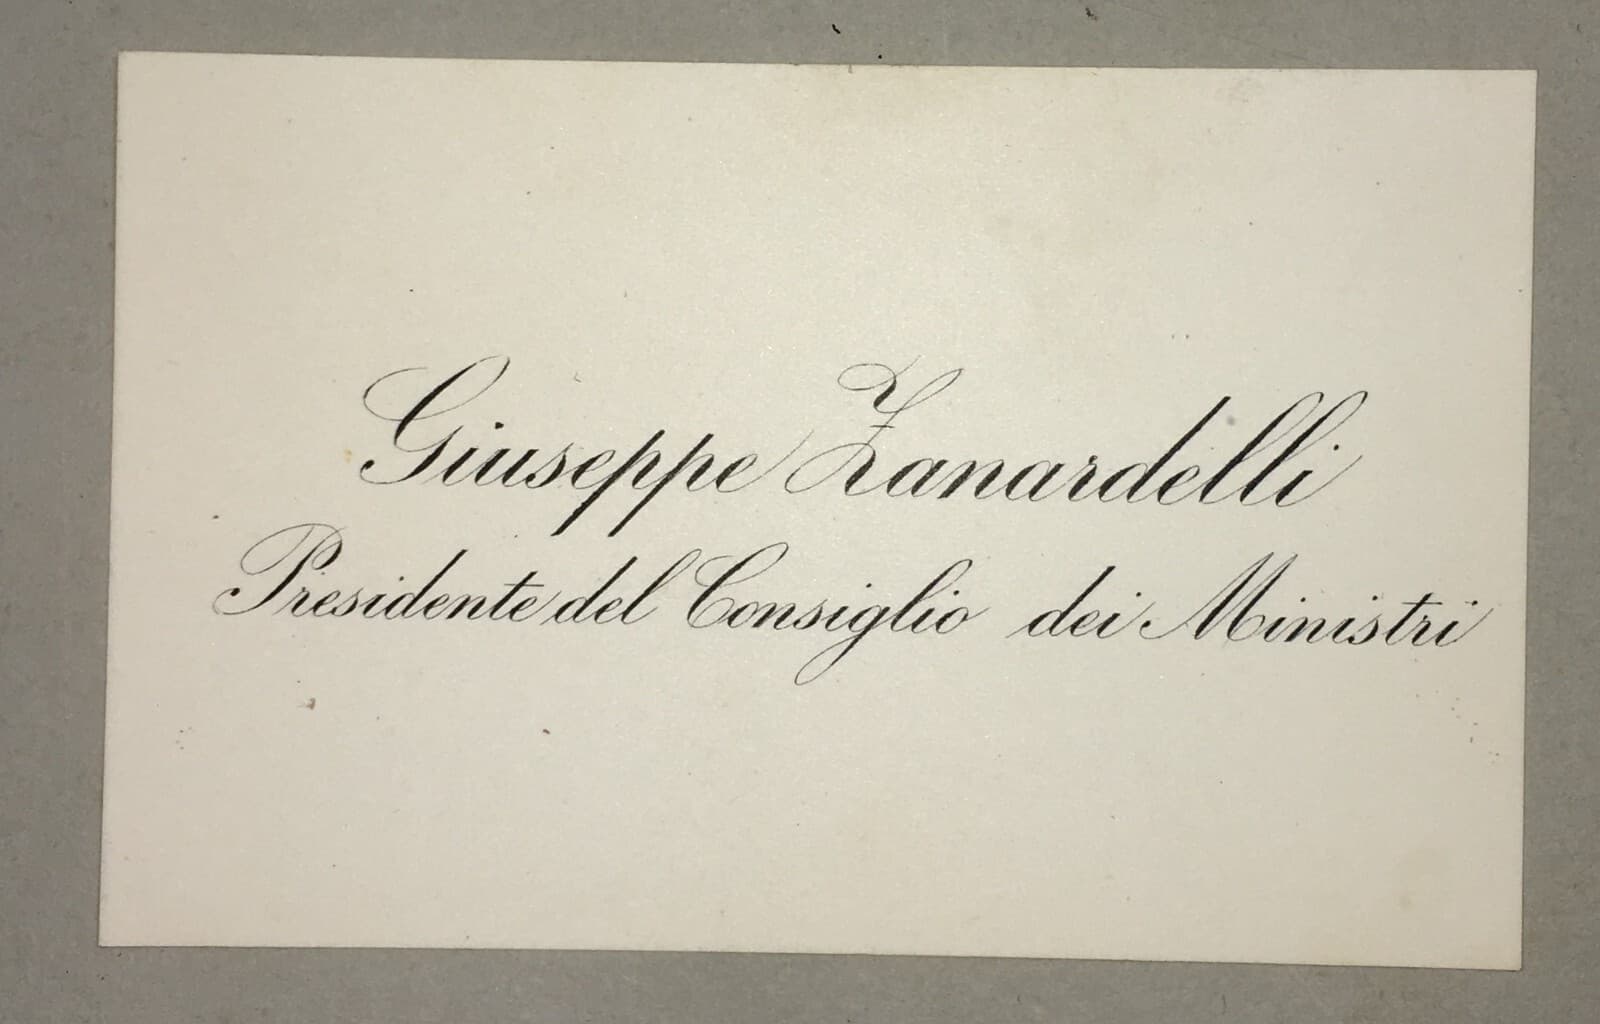 Giuseppe Zanardelli
Presidente del Consiglio dei Ministri